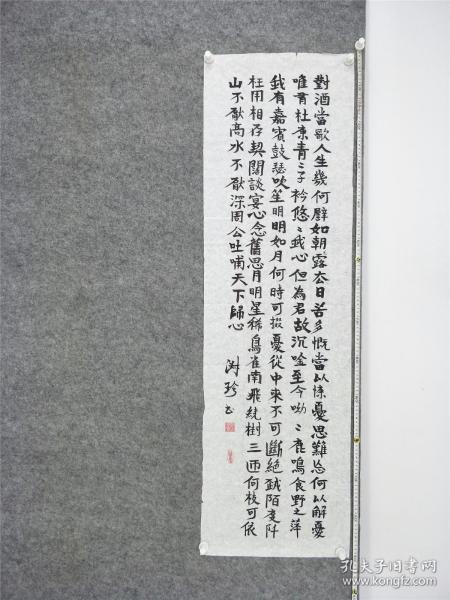 對酒當歌人生幾何譬如朝露去日苦多慨當以慷憂思難忘何以解憂
唯有杜康青〻子衿悠〻我心但為君故沉吟至今呦〻鹿鳴食野之萍
我有嘉賓鼓瑟吹笙明明如月何時可掇憂從中來不可斷絕越陌度阡
枉用相存契闊談宴心念舊恩月明星稀烏雀南飛繞樹三匝何枝可依
山不厭高水不厭深周公吐哺天下歸心
珍書
孔夫子旧书网
www.kongfz.com